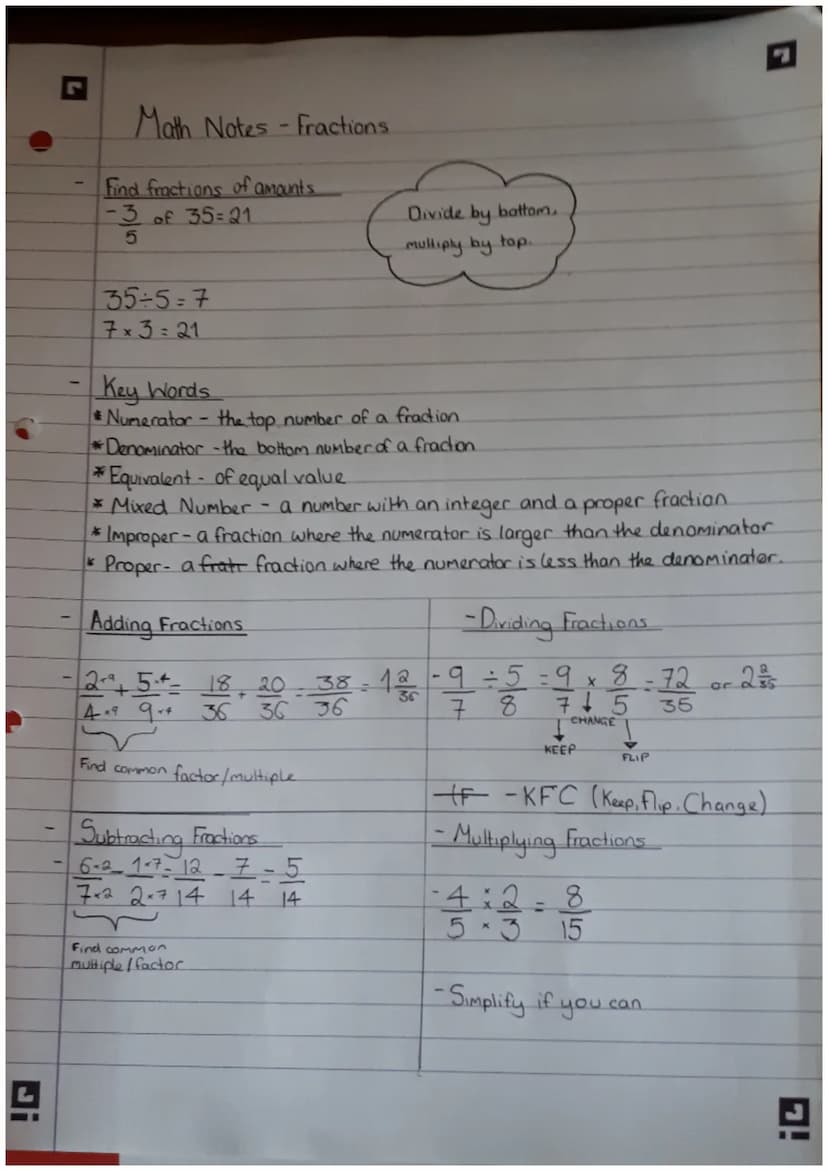 Math Notes - Fractions
- Find fractions of amounts
- 3/5 of 35 = 21
Divide by bottom,
multiply by top.
35 ÷ 5 = 7
7 × 3 = 21
- Key Words
* Numerator - the top number of a fraction
* Denominator - the bottom number of a fraction
* Equivalent - of equal value
* Mixed Number - a number with an integer and a proper fraction
* Improper - a fraction where the numerator is larger than the denominator
* Proper - a fratr fraction where the numerator is less than the denominator.
- Adding Fractions
- 2×9/4×9 + 5×4/9×4 = 18/36 + 20/36 = 38/36 = 1 2/36
Find common factor/multiple
- Subtracting Fractions
- 6×2/7×2 - 1×7/2×7 = 12/14 - 7/14 = 5/14
Find common
multiple/factor
- Dividing Fractions
- 9/7 ÷ 5/8 = 9/7 × 8/5 = 72/35 or 2 2/35
↓ CHANGE
KEEP
FLIP
- KFC (Keep, Flip, Change)
- Multiplying Fractions
- 4/5 × 2/3 = 8/15
- Simplify if you can